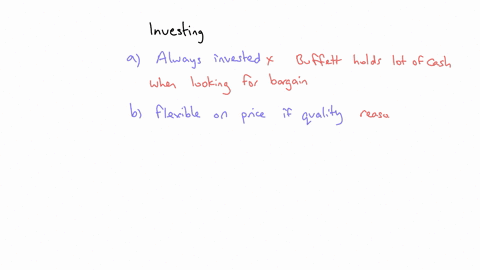 Investing
a) Always invested x Buffett holds lot of cash
when looking for bargain
b) flexible on price if quality reaso